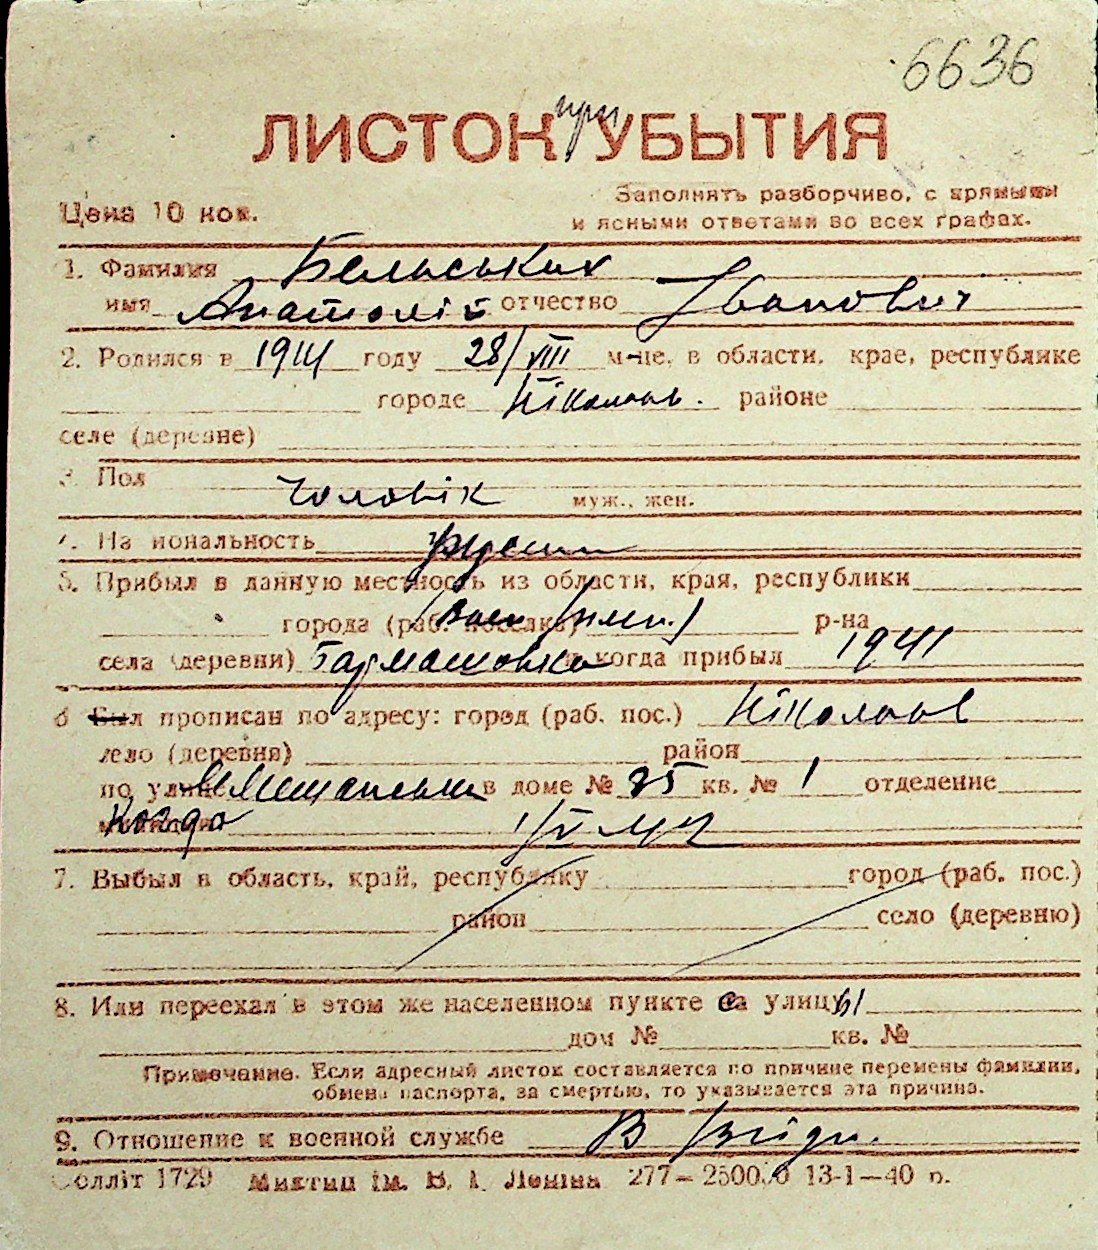 6636
при
ЛИСТОК УБЫТИЯ
Цена 10 коп.
Заполнять разборчиво, с прямыми
и ясными ответами во всех графах.
1. Фамилия Бельських
имя Анатолій отчество Іванович
2. Родился в 1914 году 28/VIII м-це, в области, крае, республике
городе Ніколаєв. районе
селе (деревне)
3. Пол чоловік муж., жен.
4. Национальность
5. Прибыл в данную местность из области, края, республики
города (раб. поселка) р-на
села (деревни) Гармашовка и когда прибыл 1941
6 Был прописан по адресу: город (раб. пос.) Ніколаєв
село (деревня) район
по улице в доме № 85 кв. № 1 отделение
Когда
7. Выбыл в область, край, республику город (раб. пос.)
район село (деревню)
8. Или переехал в этом же населенном пункте са улицы
дом № кв. №
Примечание. Если адресный листок составляется по причине перемены фамилии,
обмена паспорта, за смертью, то указывается эта причина.
9. Отношение к военной службе
Миктип ім. В. І. Леніна 277—250000 13-1—40 п.